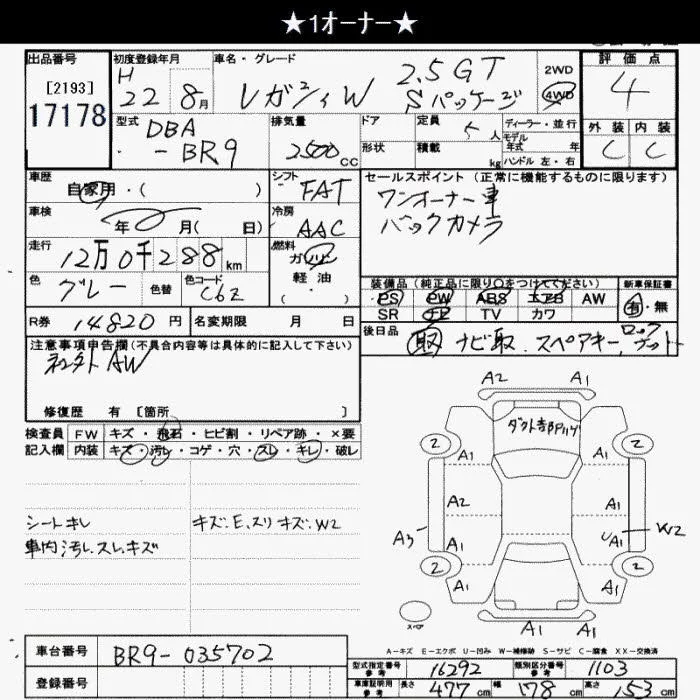 ★1オーナー★
出品番号 [2193] 17178
初度登録年月 H 22年 8月
車名・グレード レガシィW 2.5GT Sパッケージ
2WD 4WD
評価点 4
外装 内装
C C
型式 DBA-BR9
排気量 2500cc
ドア 形状
定員 5人
積載 kg
ディーラー・並行
モデル年式 年
ハンドル 左・右
車歴 自家用・( )
シフト FAT
セールスポイント (正常に機能するものに限ります)
ワンオーナー車
バックカメラ
車検 年 月( 日)
冷房 AAC
走行 12万0千288km
燃料 ガソリン 軽油・( )
色 グレー 色替 色コード C6Z
装備品 (純正品に限り○をつけてください)
新車保証書 有・無
PS PW ABS エアB AW
SR TV カワ
R券 14820円 名変期限 月 日
後日品 取 ナビ取、スペアキー、ロックナット
注意事項申告欄(不具合内容等は具体的に記入して下さい)
社外AW
修復歴 有 [箇所 ]
検査員記入欄
FW キズ・飛石・ヒビ割・リペア跡・×要
内装 キズ・汚レ・コゲ・穴・スレ・キレ・破レ
シートキレ
車内汚レ、スレ、キズ
キズ、E、スリキズ、W2
A2 A1
2 2
A1 A1
A2 A1
A3 W2
A1 UA1
2 2
A1 A1
A1 A1
スペア
A−キズ E−エクボ U−凹み W−補修跡 S−サビ C−腐食 XX−交換済
車台番号 BR9-035702
登録番号
型式指定番号 参考 16292
類別区分番号 参考 1103
車庫証明用 参考 長さ 477cm 幅 178cm 高さ 53cm